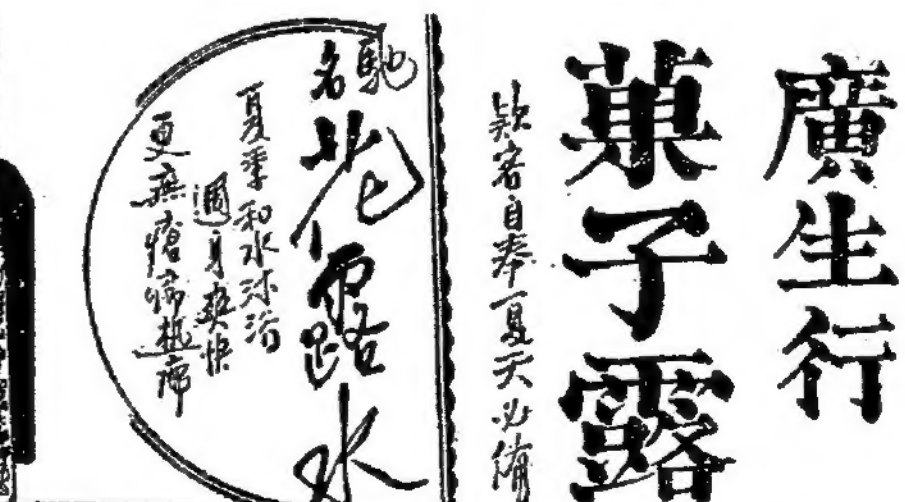 廣生行
菓子露
款客自奉夏天必備
馳名
花露水
夏季和水沐浴
週身爽快
更無瘡痱